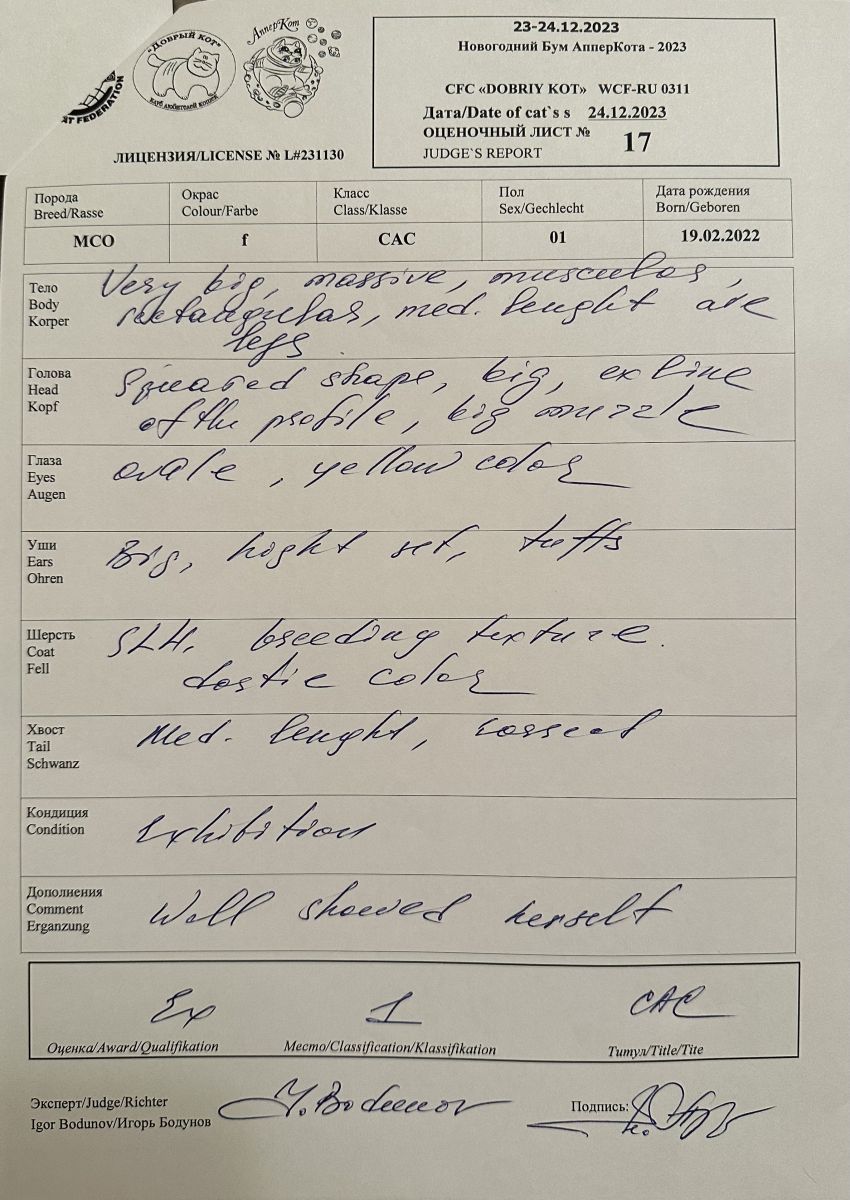 "ДОБРЫЙ КОТ"
КЛУБ ЛЮБИТЕЛЕЙ КОШЕК
АпперКот
AT FEDERATION
ЛИЦЕНЗИЯ/LICENSE № L#231130
23-24.12.2023
Новогодний Бум АпперКота - 2023
CFC «DOBRIY KOT» WCF-RU 0311
Дата/Date of cat`s s 24.12.2023
ОЦЕНОЧНЫЙ ЛИСТ № 17
JUDGE`S REPORT
Порода Окрас Класс Пол Дата рождения
Breed/Rasse Colour/Farbe Class/Klasse Sex/Gechlecht Born/Geboren
MCO f CAC 01 19.02.2022
Тело Very big, massive, musculas,
Body rectangulas, med. lenght are
Korper legs
Голова Squared shape, big, ex line
Head of the profile, big muzzle
Kopf
Глаза ovale, yellow color
Eyes
Augen
Уши Big, hight set, tuffs
Ears
Ohren
Шерсть SLH, breeding texture.
Coat color
Fell
Хвост Med. lenght,
Tail
Schwanz
Кондиция Exhibition
Condition
Дополнения Well showed herself
Comment
Erganzung
Ex 1 CAC
Оценка/Award/Qualifikation Место/Classification/Klassifikation Титул/Title/Tite
Эксперт/Judge/Richter Y. Bodunov Подпись:
Igor Bodunov/Игорь Бодунов